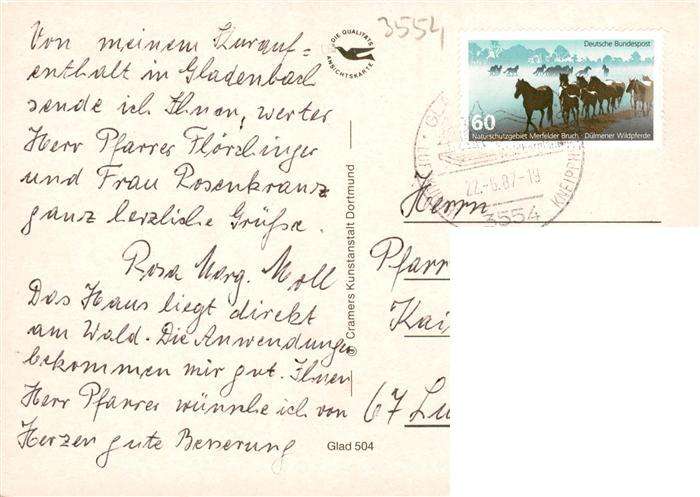 3554
Von meinem Kurauf=
enthalt in Gladenbach
sende ich Ihnen, werter
Herr Pfarrer Flörchinger
und Frau Rosenkranz
ganz herzliche Grüße.
Rosa Marg. Moll
Das Haus liegt direkt
am Wald. Die Anwendungen
bekommen mir gut. Ihnen
Herr Pfarrer wünsche ich von
Herzen gute Besserung
DIE QUALITÄTS
ANSICHTSKARTE
© Cramers Kunstanstalt Dortmund
Glad 504
Deutsche Bundespost
60
Naturschutzgebiet Merfelder Bruch · Dülmener Wildpferde
22.-6.87-19
KNEIPP
3554
Herrn
Pfarr
Kai
67 Lu